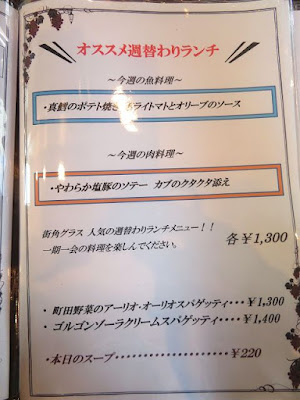 オススメ週替わりランチ
～今週の魚料理～
・真鱈のポテト焼き ドライトマトとオリーブのソース
～今週の肉料理～
・やわらか塩豚のソテー カブのクタクタ添え
街角グラス 人気の週替わりランチメニュー！！
一期一会の料理を楽しんでください。
各￥1,300
・町田野菜のアーリオ・オーリオスパゲッティ・・・￥1,300
・ゴルゴンゾーラクリームスパゲッティ・・・・￥1,400
・本日のスープ・・・・・・・・・・・・・・・・・・￥220